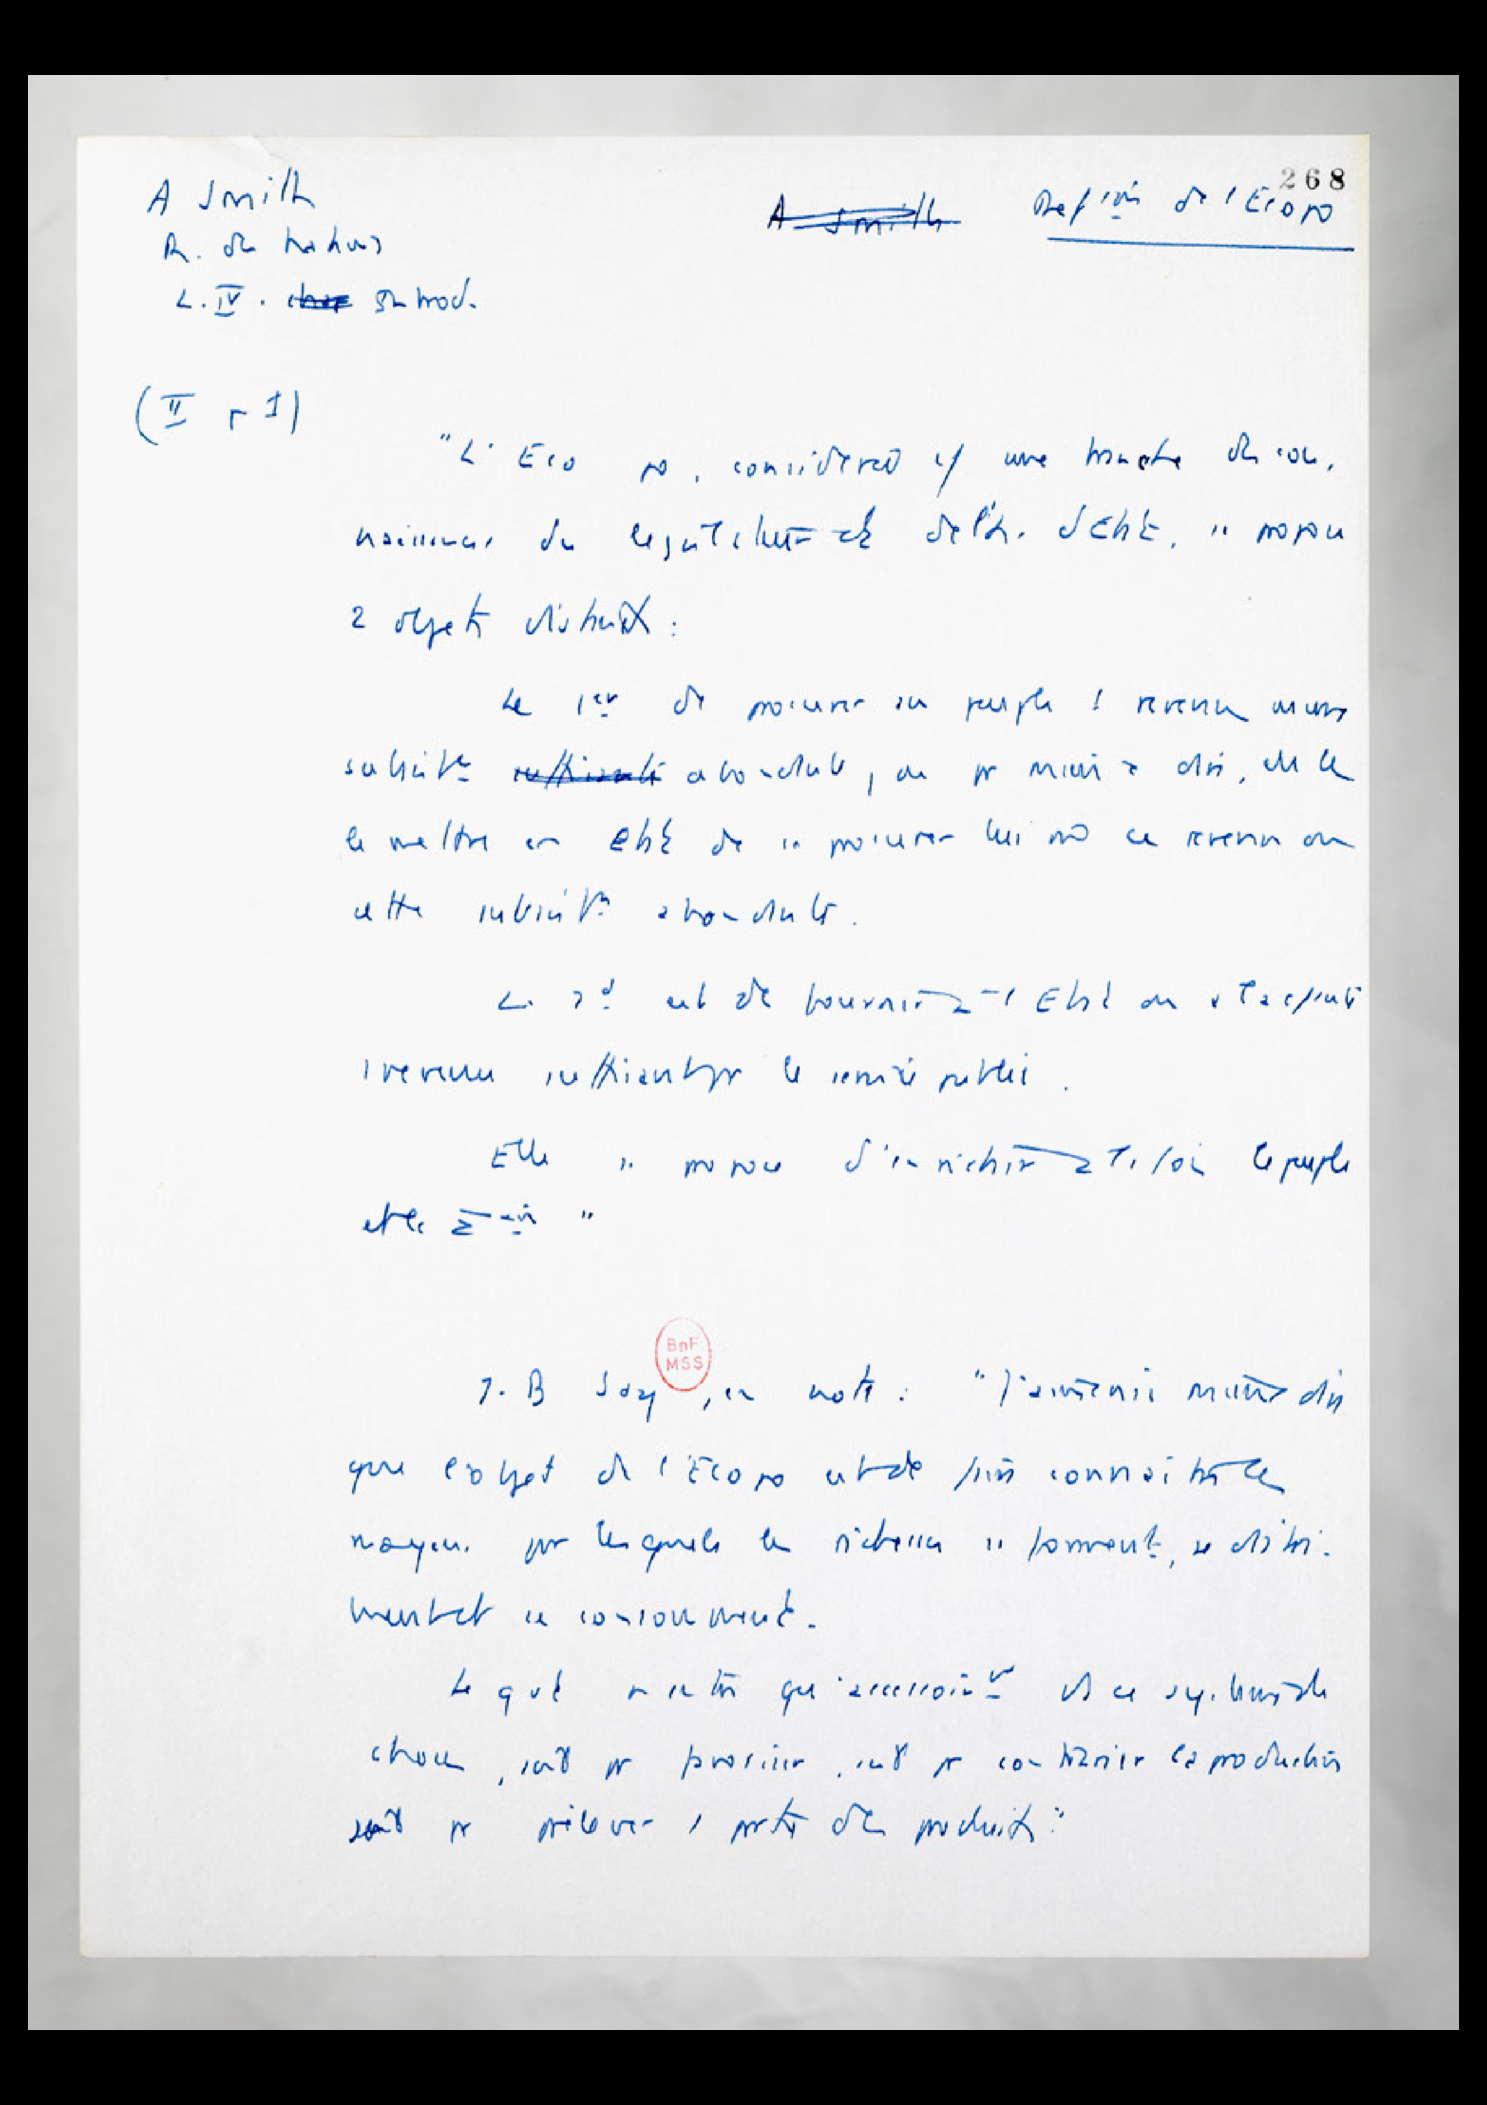 268
A Smith
A Smith Def^ion de l'Eco po
R. des Nations
L. IV. chap Introd.
(II p 1)
"L'Eco po, considérée c/ une branche des con-
naissances du législateur et de l'h. d'Etat, se propose
2 objets distincts :
Le 1er de procurer au peuple 1 revenu ou une
subsistce suffisante abondante, ou pr mieux dire, de le
le mettre en état de se procurer lui mê ce revenu ou
cette subsistce abondante.
Le 2d est de fournir à l'Etat ou à la
1 revenu suffisant pr le service public.
Elle se propose d'enrichir à la fois le peuple
et le
BnF
MSS
J. B Say, en note : "J'aimerais mieux dire
que l'objet de l'Eco po est de faire connaître les
moyens par lesquels les richesses se forment, se distri-
buent et se consomment.
Le gvt n'entre qu'accessoirt ds ce système de
choses, soit pr favoriser, soit pr contrarier la production
soit pr prélever 1 partie des produits."